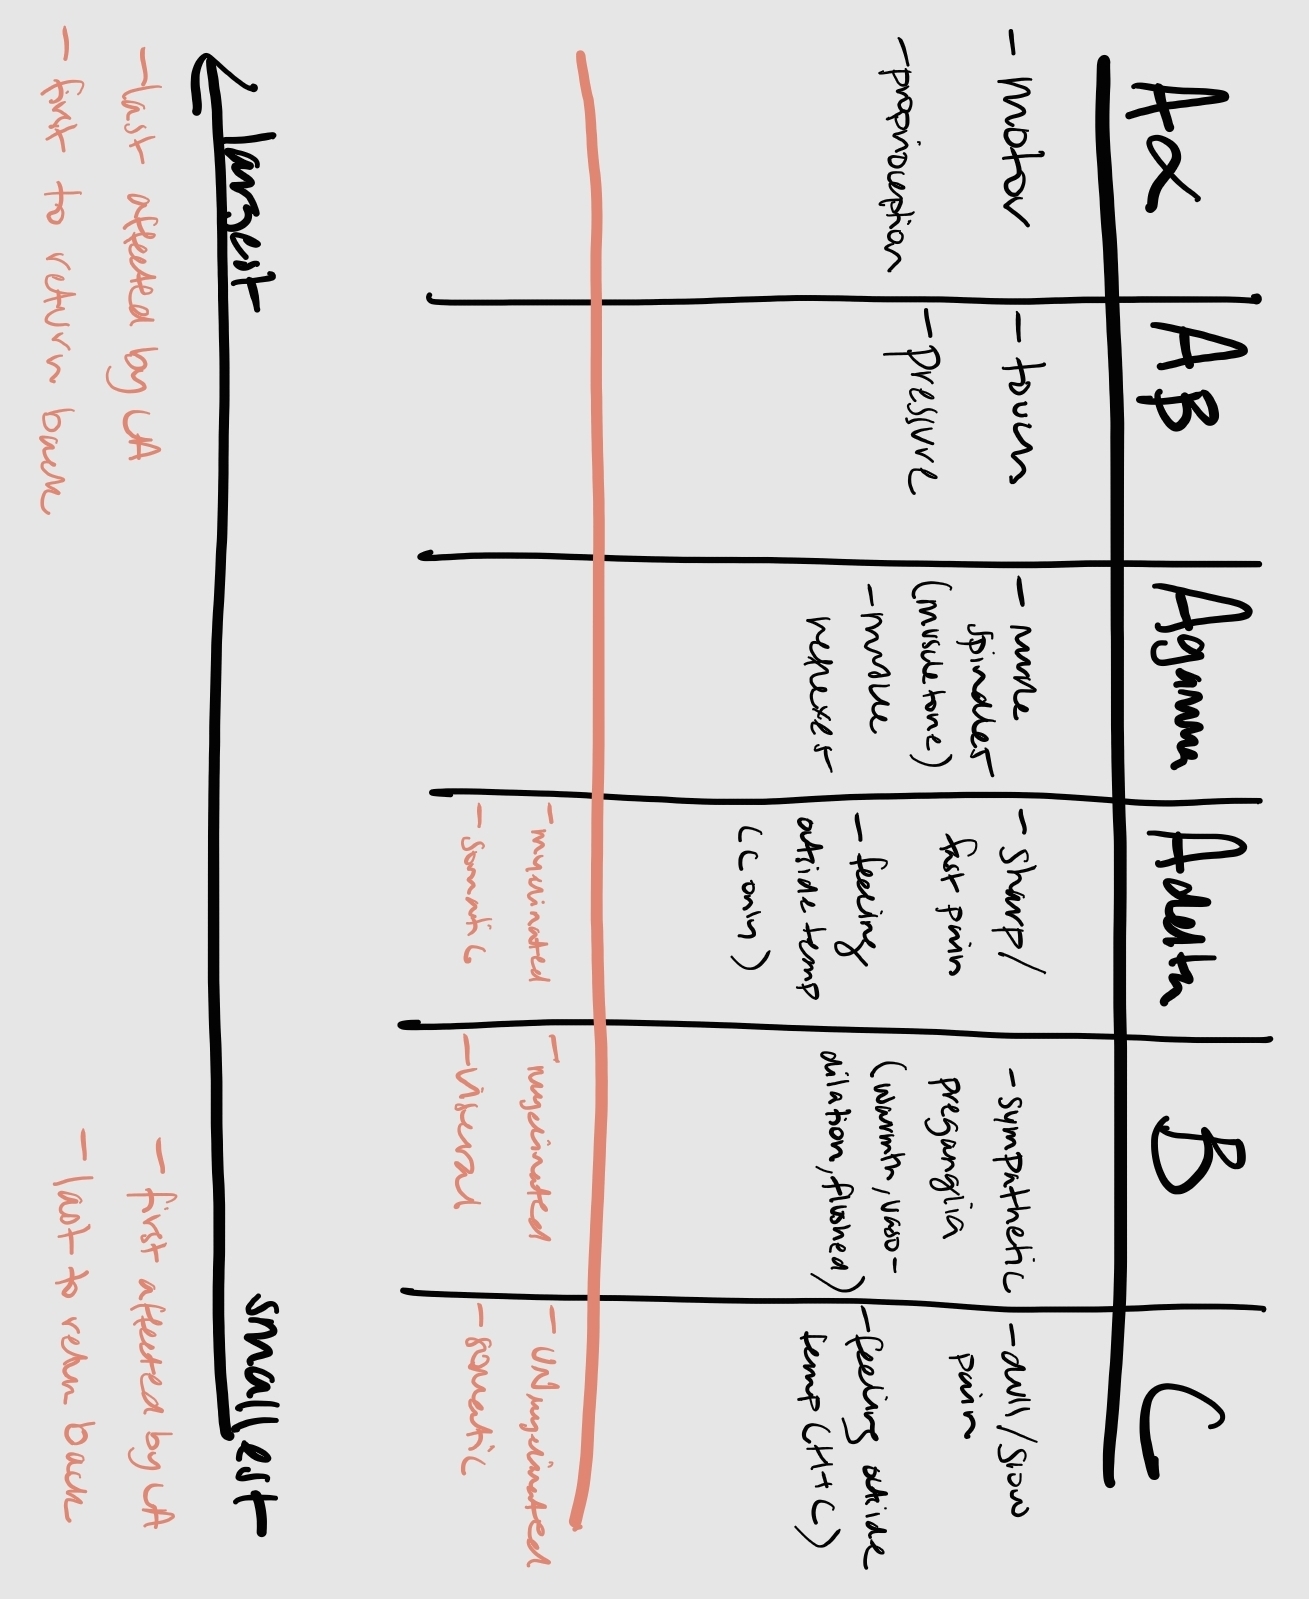 Aα
- motor
- proprioception
AB
- touch
- pressure
Agamma
- muscle
spindles
(muscle tone)
- muscle
reflexes
Adelta
- sharp/
fast pain
- feeling
outside temp
(C only)
- myelinated
- somatic
B
- sympathetic
preganglia
(warmth, vaso-
dilation, flushed)
- myelinated
- visceral
C
- dull/slow
pain
- feeling outside
temp (H+C)
- UNmyelinated
- somatic
largest
smallest
- last affected by LA
- first to return back
- first affected by LA
- last to return back